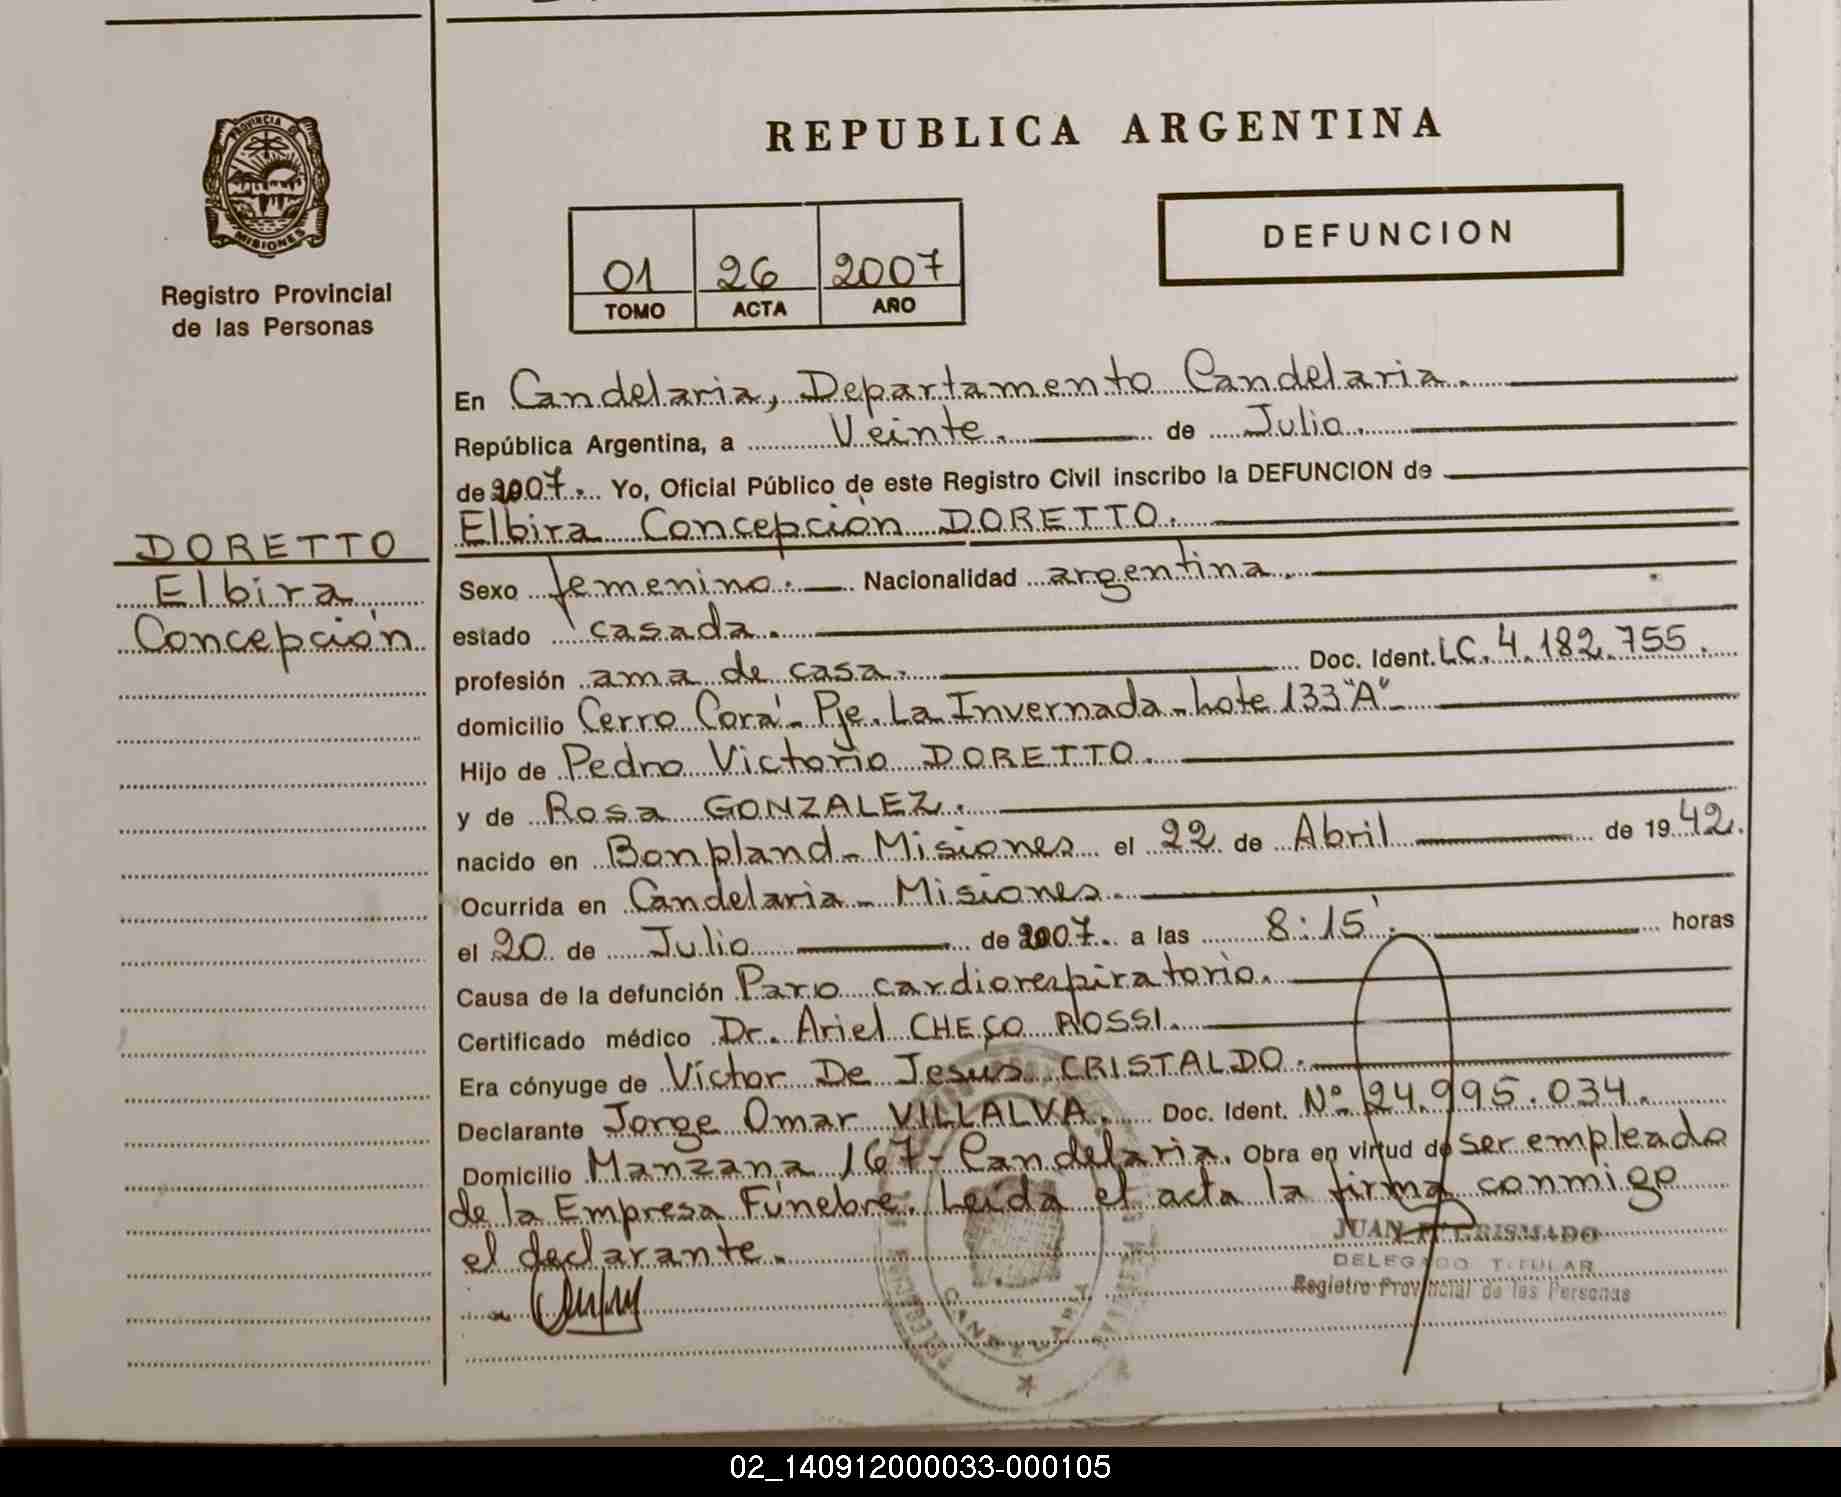 PROVINCIA D
MISIONES
Registro Provincial
de las Personas
DORETTO
Elbira
Concepción
REPUBLICA ARGENTINA
01 26 2007
TOMO ACTA AÑO
DEFUNCION
En Candelaria, Departamento Candelaria.
República Argentina, a Veinte. de Julio.
de 2007. Yo, Oficial Público de este Registro Civil inscribo la DEFUNCION de
Elbira Concepción DORETTO.
Sexo femenino. Nacionalidad argentina.
estado casada.
profesión ama de casa. Doc. Ident. LC. 4.182.755.
domicilio Cerro Corá - Pje. La Invernada - Lote 133 "A" -
Hijo de Pedro Victorio DORETTO.
y de Rosa GONZALEZ.
nacido en Bonpland - Misiones el 22 de Abril de 1942.
Ocurrida en Candelaria - Misiones.
el 20 de Julio de 2007. a las 8:15'. horas
Causa de la defunción Paro cardiorespiratorio.
Certificado médico Dr. Ariel CHECO ROSSI.
Era cónyuge de Víctor De Jesus CRISTALDO.
Declarante Jorge Omar VILLALVA. Doc. Ident. Nº 24.995.034.
Domicilio Manzana 167 - Candelaria. Obra en virtud de ser empleado
de la Empresa Fúnebre. Leída el acta la firma conmigo
el declarante.
JUAN CRISMADO
DELEGADO TITULAR
Registro Provincial de las Personas
02_140912000033-000105